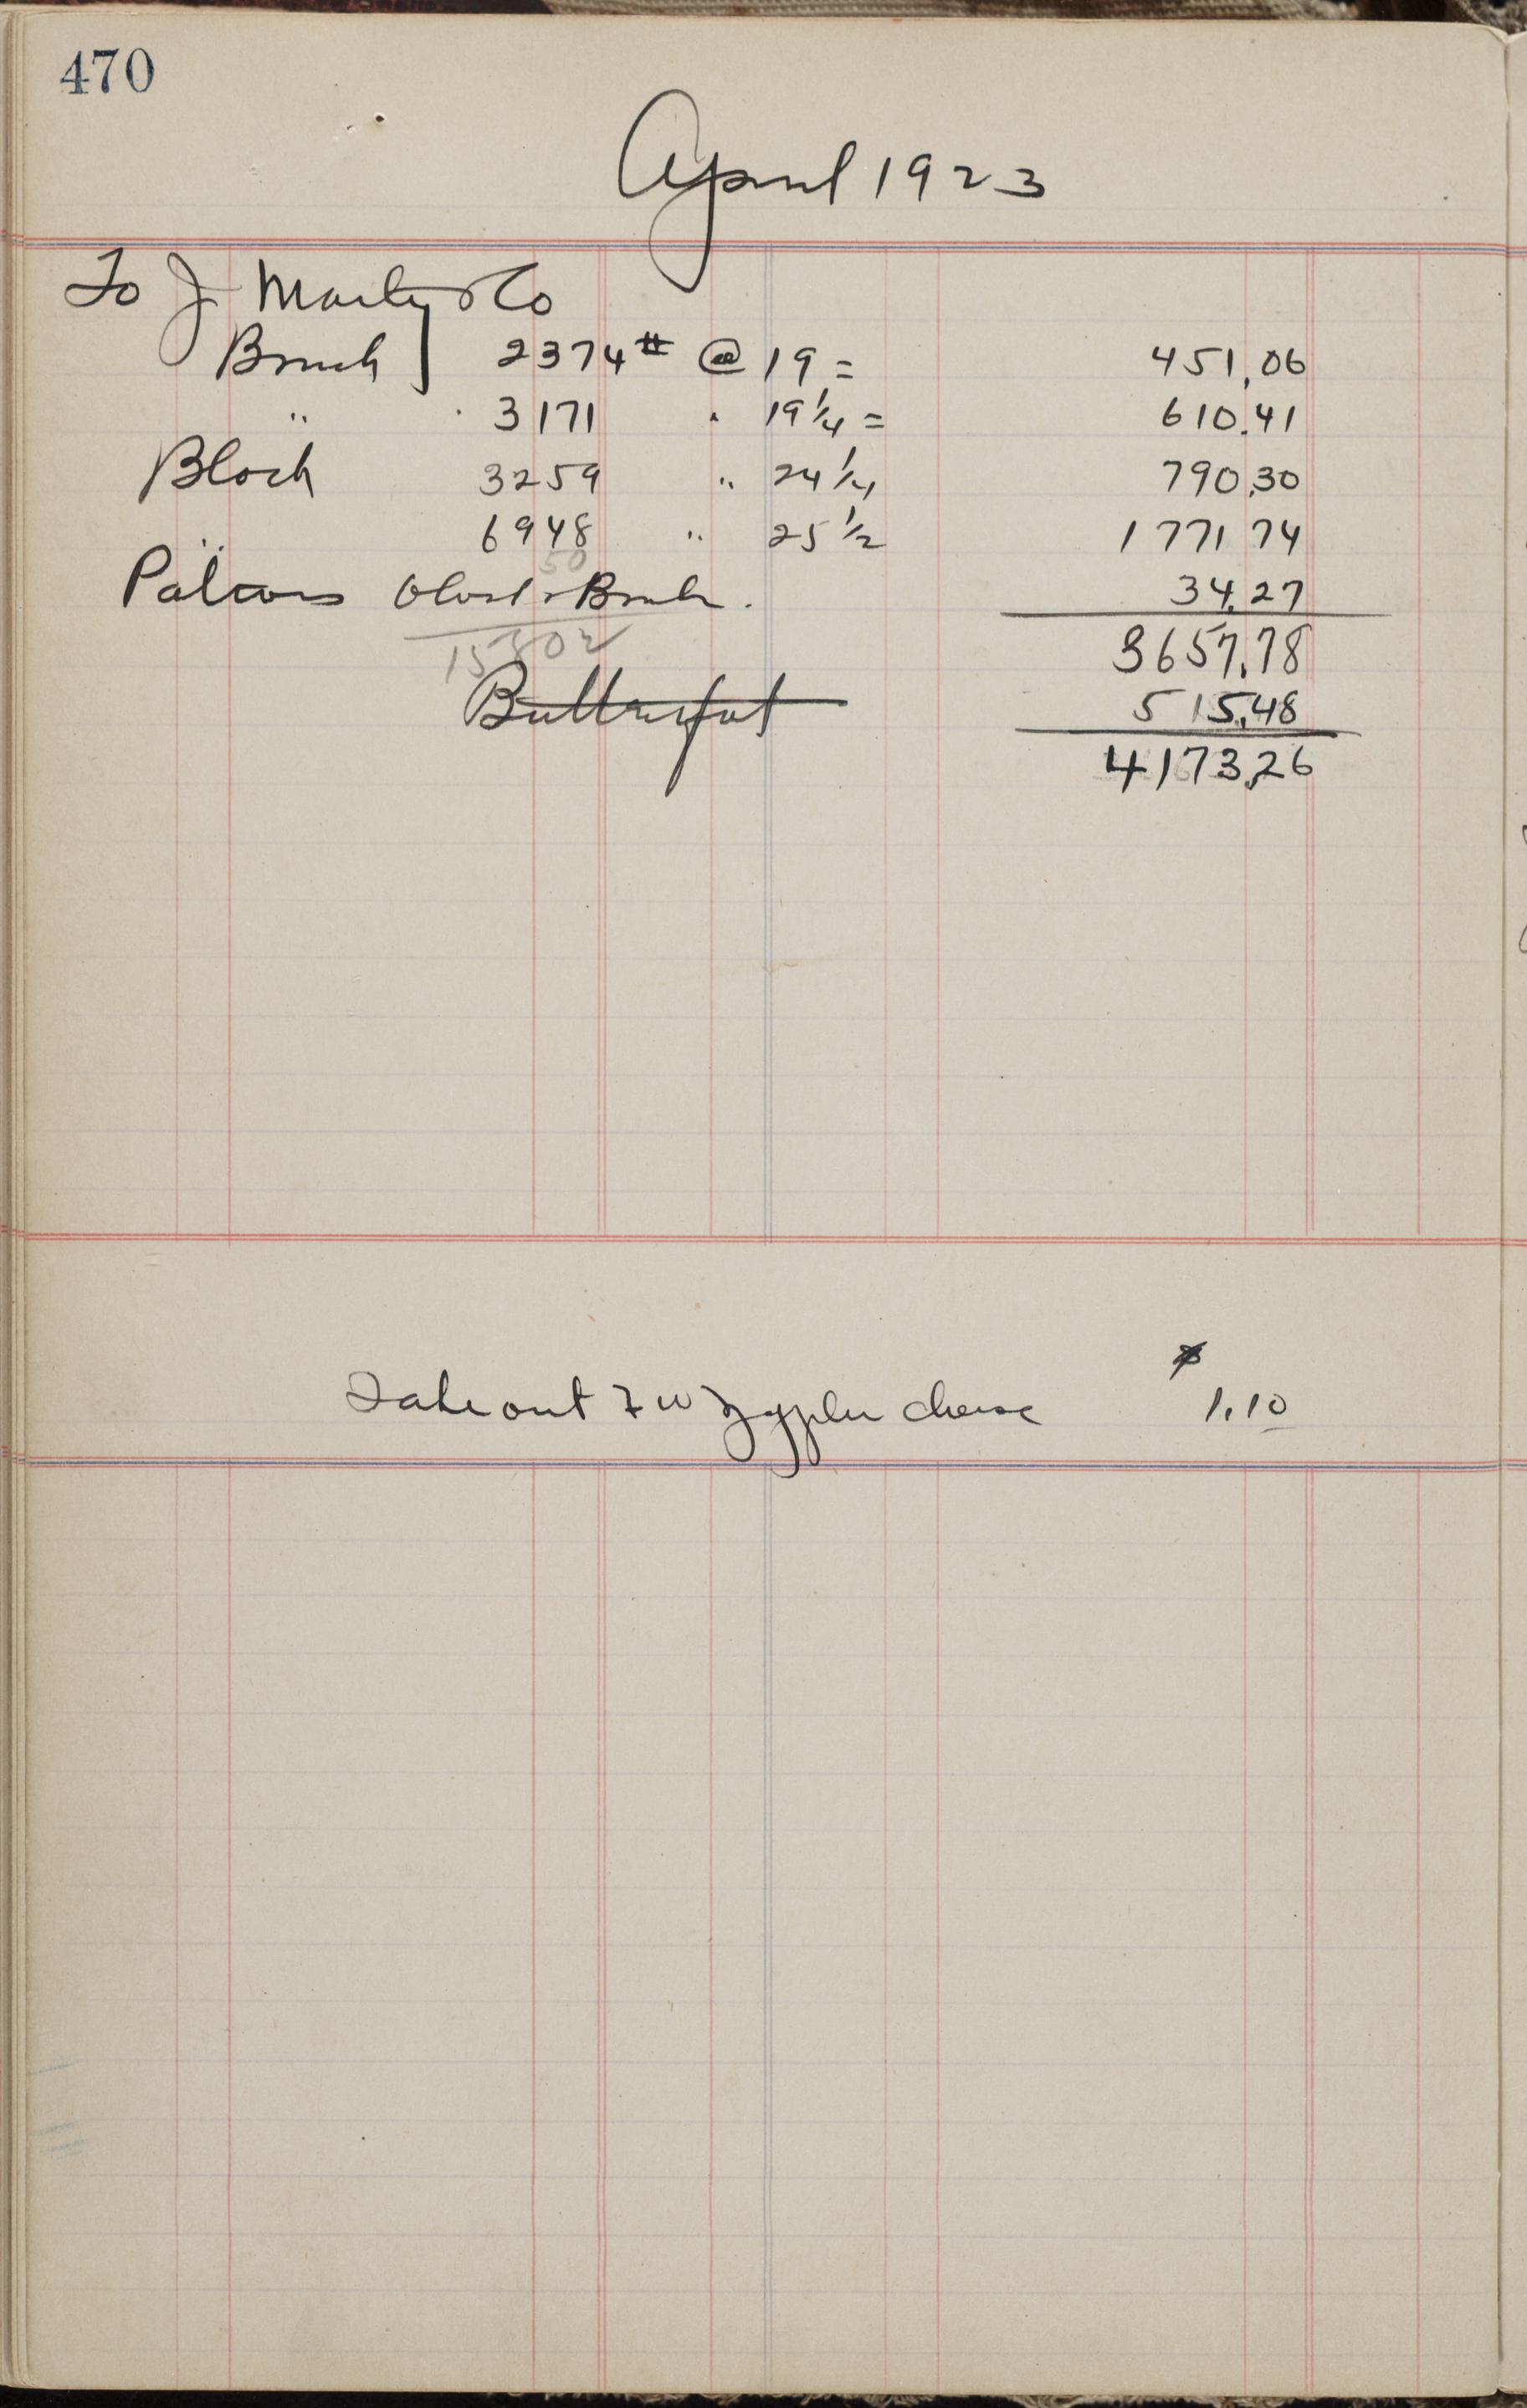 470
April 1923
To J Marty & Co
Brick 2374# @ 19 = 451.06
" 3171 " 19 1/4 = 610.41
Block 3259 " 24 1/4 790.30
" 6948 " 25 1/2 1771 74
50
Patrons Block & Brick. 34.27
15802 3657.78
Butterfat 515.48
4173.26
Take out F W cheese $ 1.10